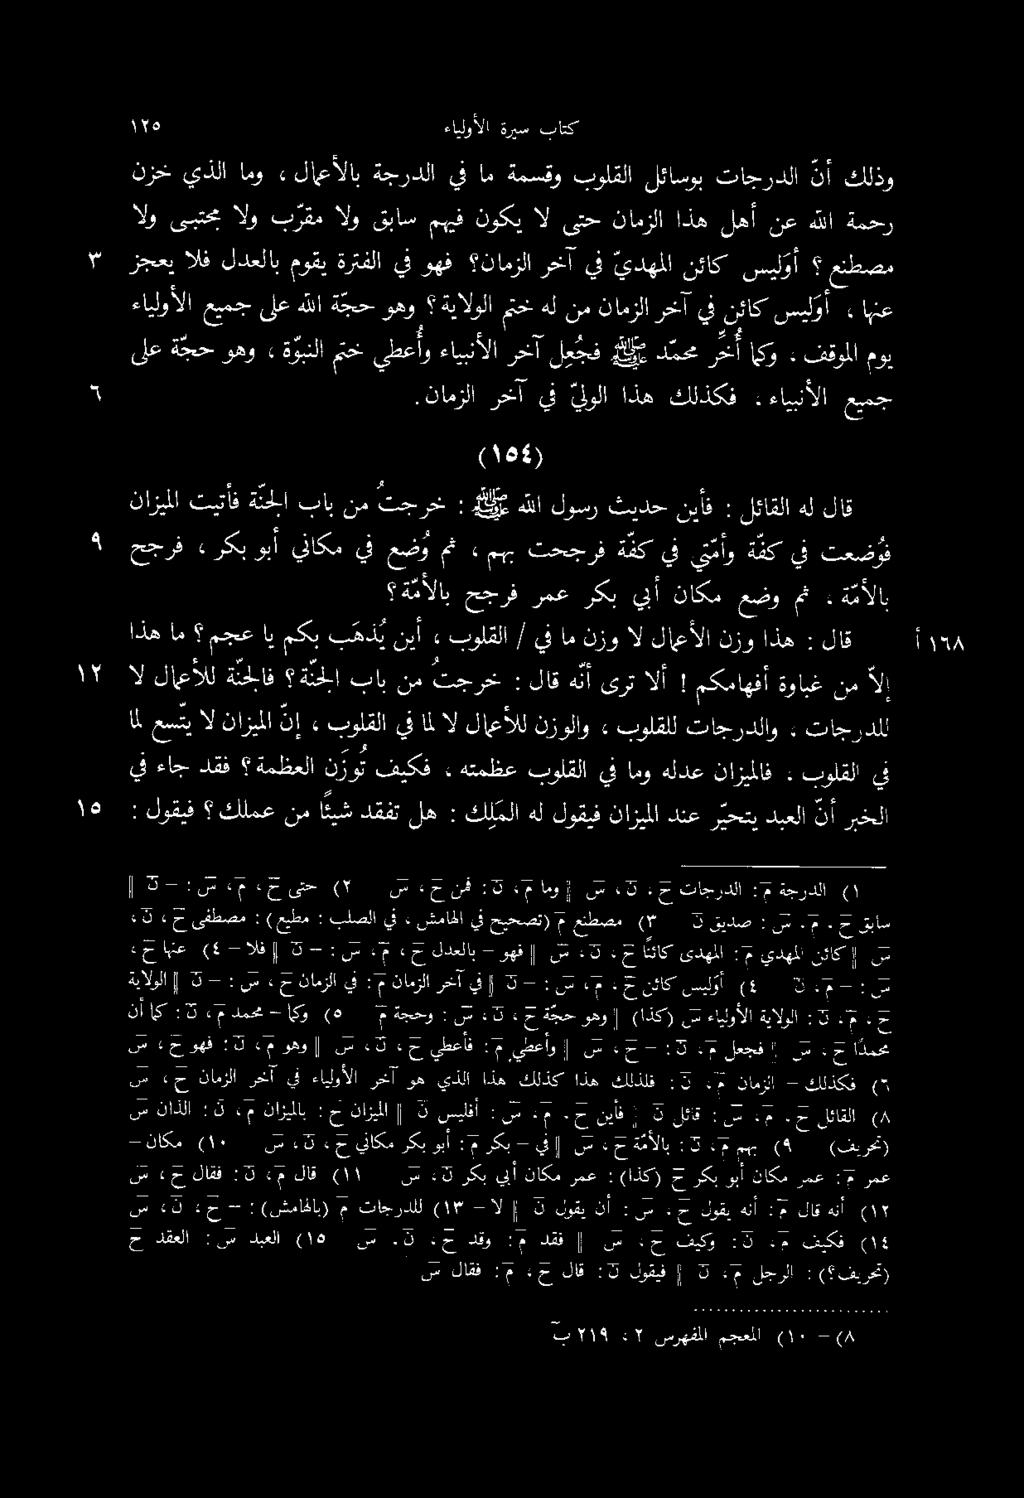 كتاب سيرة الأولياء ١٢٥
وذلك أنّ الدرجات بوسائل القلوب وقسمة ما في الدرجة بالأعمال ، وما الذي خزن
رحمة الله عن أهل هذا الزمان حتى لا يكون فيهم سابق ولا مقرّب ولا مجتبى ولا
مصطنع ؟ أوَليس كائن المهديّ في آخر الزمان؟ فهو في الفترة يقوم بالعدل فلا يعجز ٣
عنها ، أوَليس كائن في آخر الزمان من له ختم الولاية؟ وهو حجّة الله على جميع الأولياء
يوم الموقف . وكما أُخِّر محمّد ﷺ فجُعِل آخر الأنبياء وأُعطي ختم النبوّة ، وهو حجّة على
جميع الأنبياء ، فكذلك هذا الوليّ في آخر الزمان. ٦
(١٥٤)
قال له القائل : فأين حديث رسول الله ﷺ : خرجتُ من باب الجنّة فأتيت الميزان
فوُضعت في كفّة وأمّتي في كفّة فرجحت بهم ، ثم وُضع في مكاني أبو بكر ، فرجح ٩
بالأمّة . ثم وضع مكان أبي بكر عمر فرجح بالأمّة؟
قال : هذا وزن الأعمال لا وزن ما في / القلوب ، أين يُذهَب بكم يا عجم؟ ما هذا ١٦٨ أ
إلاّ من غباوة أفهامكم ! ألا ترى أنّه قال : خرجتُ من باب الجنّة؟ فالجنّة للأعمال لا ١٢
للدرجات ، والدرجات للقلوب ، والوزن للأعمال لا لما في القلوب ، إنّ الميزان لا يتّسع لما
في القلوب . فالميزان عدله وما في القلوب عظمته ، فكيف تُوزَن العظمة؟ فقد جاء في
الخبر أنّ العبد يتحيّر عند الميزان فيقول له المَلِك : هل تفقد شيئاً من عملك؟ فيقول : ١٥
١) الدرجة م : الدرجات ح ، ن ، س ‖ وما م ، ن : فمن ح ، س ٢) حتى ح ، م ، س : – ن ‖
سابق ح ، م ، س : صديق ن ٣) مصطنع م (تصحيح في الهامش ، في الصلب : مطيع) : مصطفى ح ، ن ،
س ‖ كائن المهدي م : المهدى كائناً ح ، ن ، س ‖ فهو – بالعدل ح ، م ، س : – ن ‖ فلا – ٤) عنها ح ،
س : – م ، ن ٤) أوَليس كائن ح ، م ، س : – ن ‖ في آخر الزمان م : في الزمان ح ، س : – ن ‖ الولاية
ح ، م ، ن : الولاية الأولياء س (كذا) ‖ وهو حجّة ح ، ن ، س : وحجة م ٥) وكما – محمد م ، ن : كما أن
محمداً ح ، س ‖ فجعل م ، ن : – ح ، س ‖ وأعطي م : فأعطي ح ، ن ، س ‖ وهو م ، ن : فهو ح ، س
٦) فكذلك – الزمان م ، ن : فلذلك هذا كذلك هذا الذي هو آخر الأولياء في آخر الزمان ح ، س
٨) القائل ح ، م ، س : قائل ن ‖ فأين ح ، م ، س : أفليس ن ‖ الميزان ح : بالميزان م ، ن : الذان س
(تحريف) ٩) بهم م ، ن : بالأمّة ح ، س ‖ في – بكر م : أبو بكر مكاني ح ، ن ، س ١٠) مكان –
عمر م : عمر مكان أبو بكر ح (كذا) : عمر مكان أبي بكر ن ، س ١١) قال م ، ن : فقال ح ، س
١٢) أنه قال م : أنه يقول ح ، س : أن يقول ن ‖ لا – ١٣) للدرجات م (بالهامش) : – ح ، ن ، س
١٤) فكيف م ، ن : وكيف ح ، س ‖ فقد م : وقد ح ، ن ، س ١٥) العبد س : العقد ح
(تحريف؟) : الرجل م ، ن ‖ فيقول ن : قال ح ، م : فقال س
٨) – ١٠) المعجم المفهرس ٢ ، ٢١٩ ب